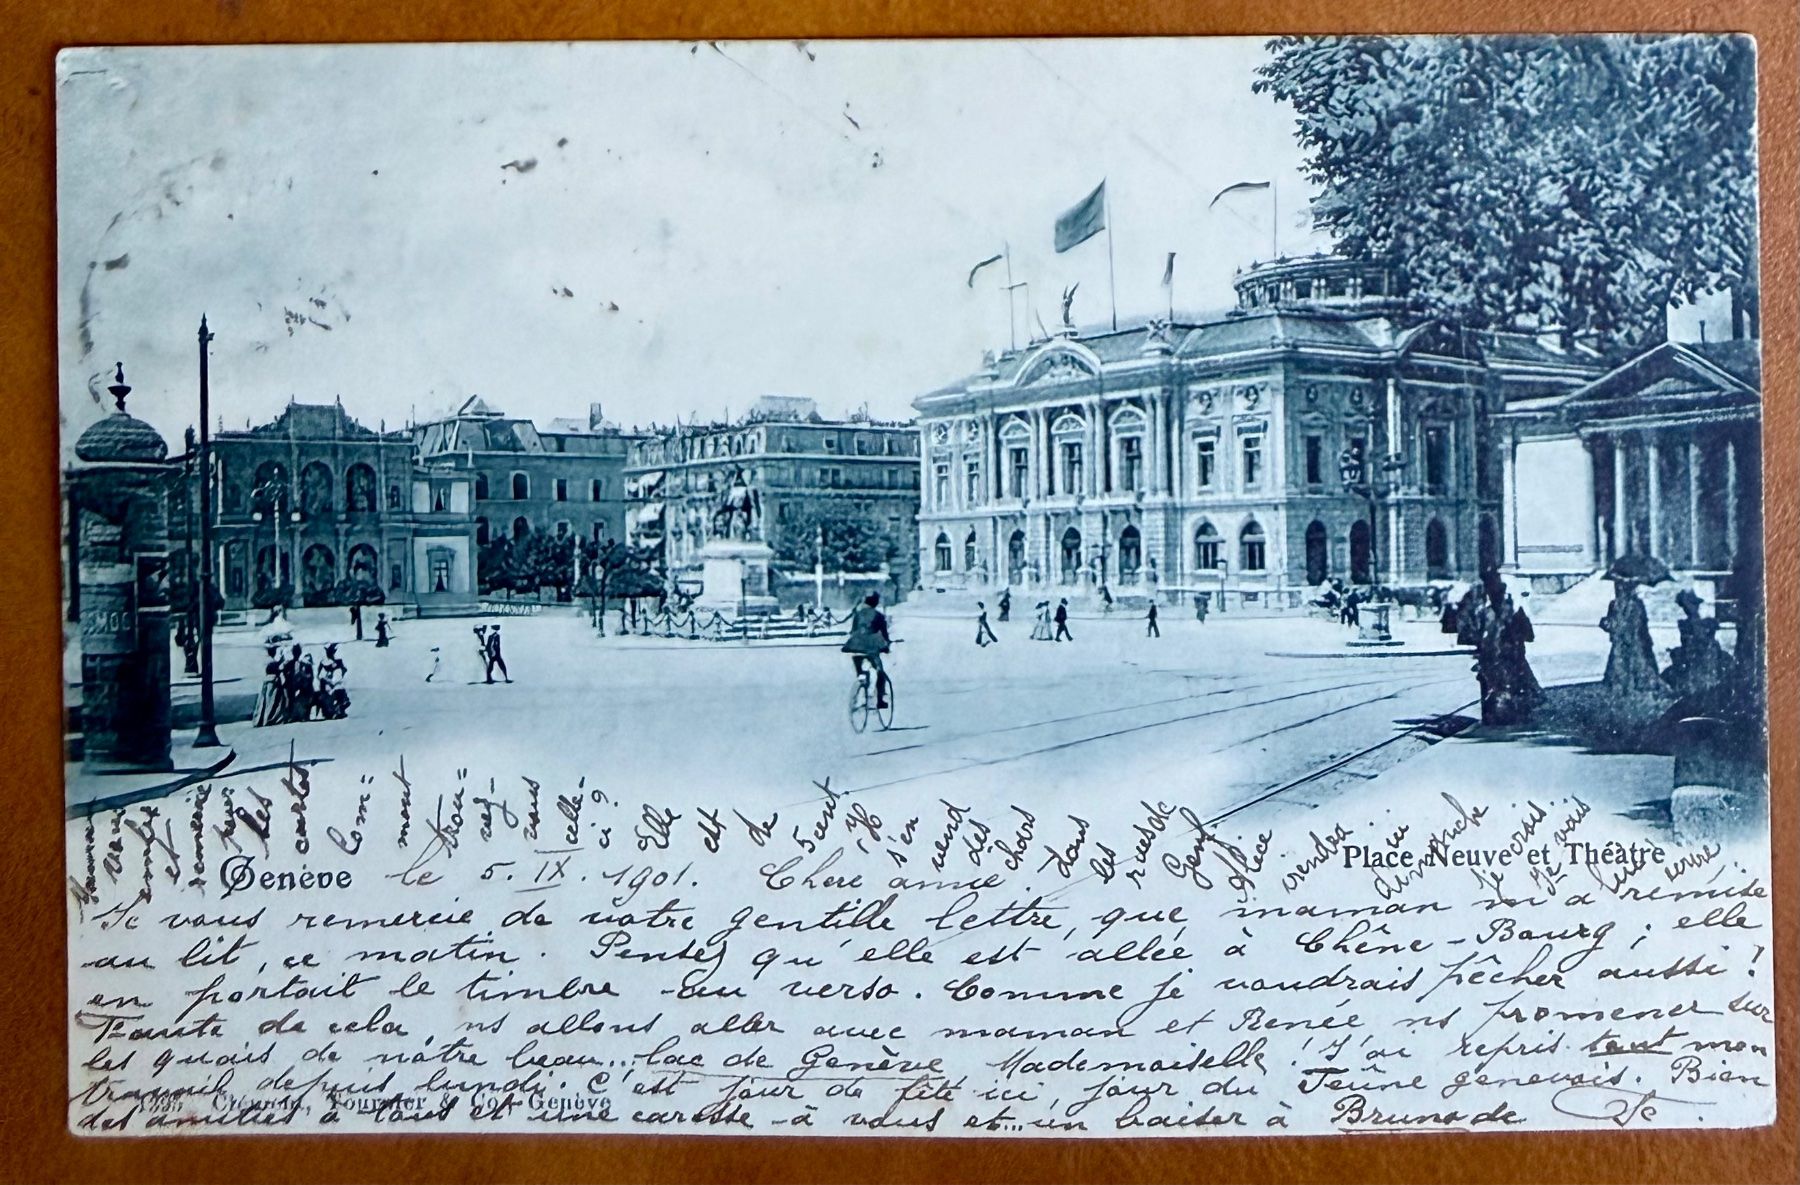 Maman vous embrasse et remercie pour les cartes. Com=
ment trou=
vez-
vous celle-
ci? Elle est de 5 cent. Il s'en vend dès chars dans les rues de Genf
Alice viendra dimanche
je crois
Je vais lui
Genève le 5. IX. 1901. Chère amie.
Place Neuve et Théâtre
Je vous remercie de votre gentille lettre, que maman m'a remise
au lit, ce matin. Pensez qu'elle est allée à Chêne-Bourg; elle
en portait le timbre au verso. Comme je voudrais pêcher aussi!
Faute de cela, ns allons aller avec maman et Renée ns promener sur
les quais de nôtre beau... lac de Genève Mademoiselle! J'ai repris tout mon
travail depuis lundi. C'est jour de fête ici, jour du Jeûne genevois. Bien
Fournier & Co, Genève
des amitiés à tous et une caresse à vous et... un baiser à Bruno de